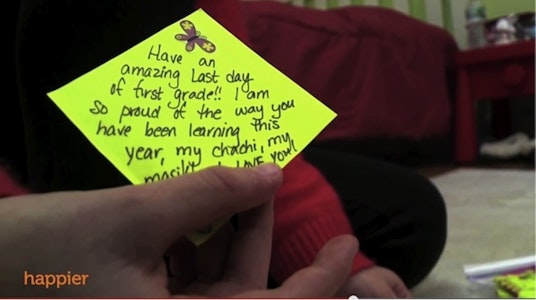 Have an
amazing Last day
of first grade!! I am
So proud of the way you
have been learning this
year, my chachi, my
LOVE YOU!!
happier